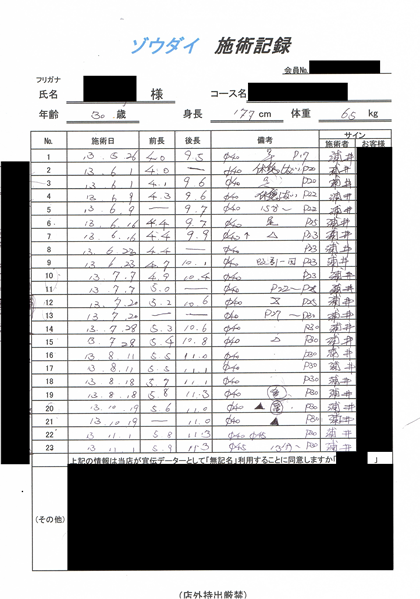 ゾウダイ 施術記録
会員No.
フリガナ
氏名 様 コース名
年齢 30 歳 身長 177 cm 体重 65 kg
No. 施術日 前長 後長 備考 サイン
施術者 お客様
1 13.5.26 4.0 9.5 Φ40 P17 蒲井
2 13.6.1 4.0 — Φ40 P20 蒲井
3 13.6.1 4.1 9.6 Φ40 P20 蒲井
4 13.6.9 4.3 9.6 Φ40 P22 蒲井
5 13.6.9 — 9.7 P22 蒲井
6 13.6.16 4.4 9.7 P25 蒲井
7 13.6.16 4.4 9.9 Φ40 △ P23 蒲井
8 13.6.23 4.4 — Φ40 P23 蒲井
9 13.6.23 4.7 10.1 P23 蒲井
10 13.7.7 4.9 10.4 Φ40 P23 蒲井
11 13.7.7 5.0 — P22〜 蒲井
12 13.7.20 5.2 10.6 Φ40 P25 蒲井
13 13.7.20 — — P27〜P30 蒲井
14 13.7.28 5.3 10.6 Φ40 P30 蒲井
15 13.7.28 5.4 10.8 Φ40 △ P30 蒲井
16 13.8.11 5.5 11.0 Φ40 P30 蒲井
17 13.8.11 5.5 11.1 Φ40 P30 蒲井
18 13.8.18 5.7 11.1 Φ40 P30 蒲井
19 13.8.18 5.8 11.3 Φ40 P30 蒲井
20 13.10.19 5.6 11.0 Φ40 ▲ P30 蒲井
21 13.10.19 — 11.0 Φ40 ▲ P30 蒲井
22 13.11.1 5.8 11.3 Φ40 Φ45 P30 蒲井
23 13.11.1 5.9 11.3 Φ45 P30 蒲井
上記の情報は当店が宣伝データーとして「無記名」利用することに同意しますか「 」
(その他)
(店外持出厳禁)